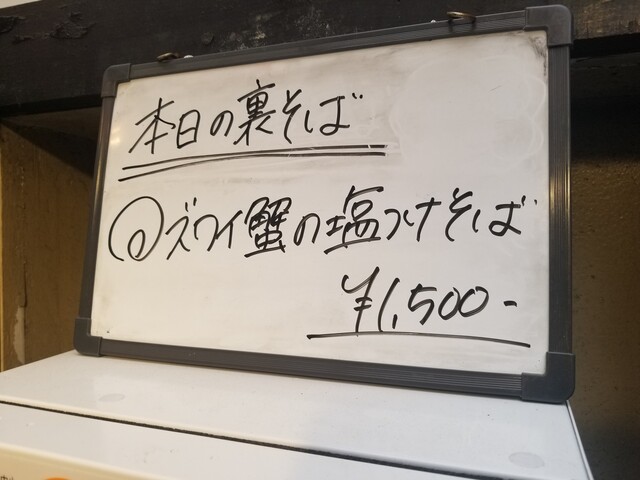 本日の裏そば
ズワイ蟹の塩つけそば
¥1,500-